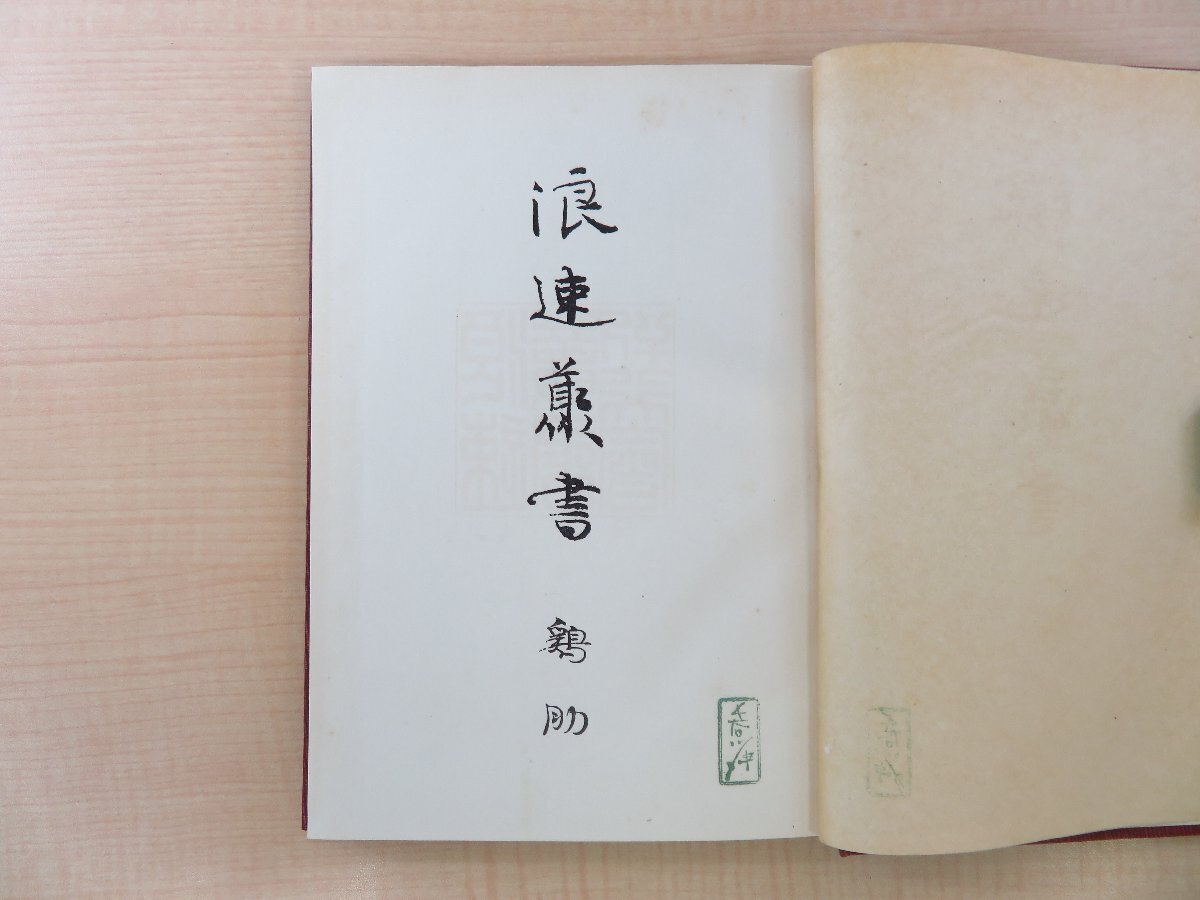 浪速叢書
鷄助